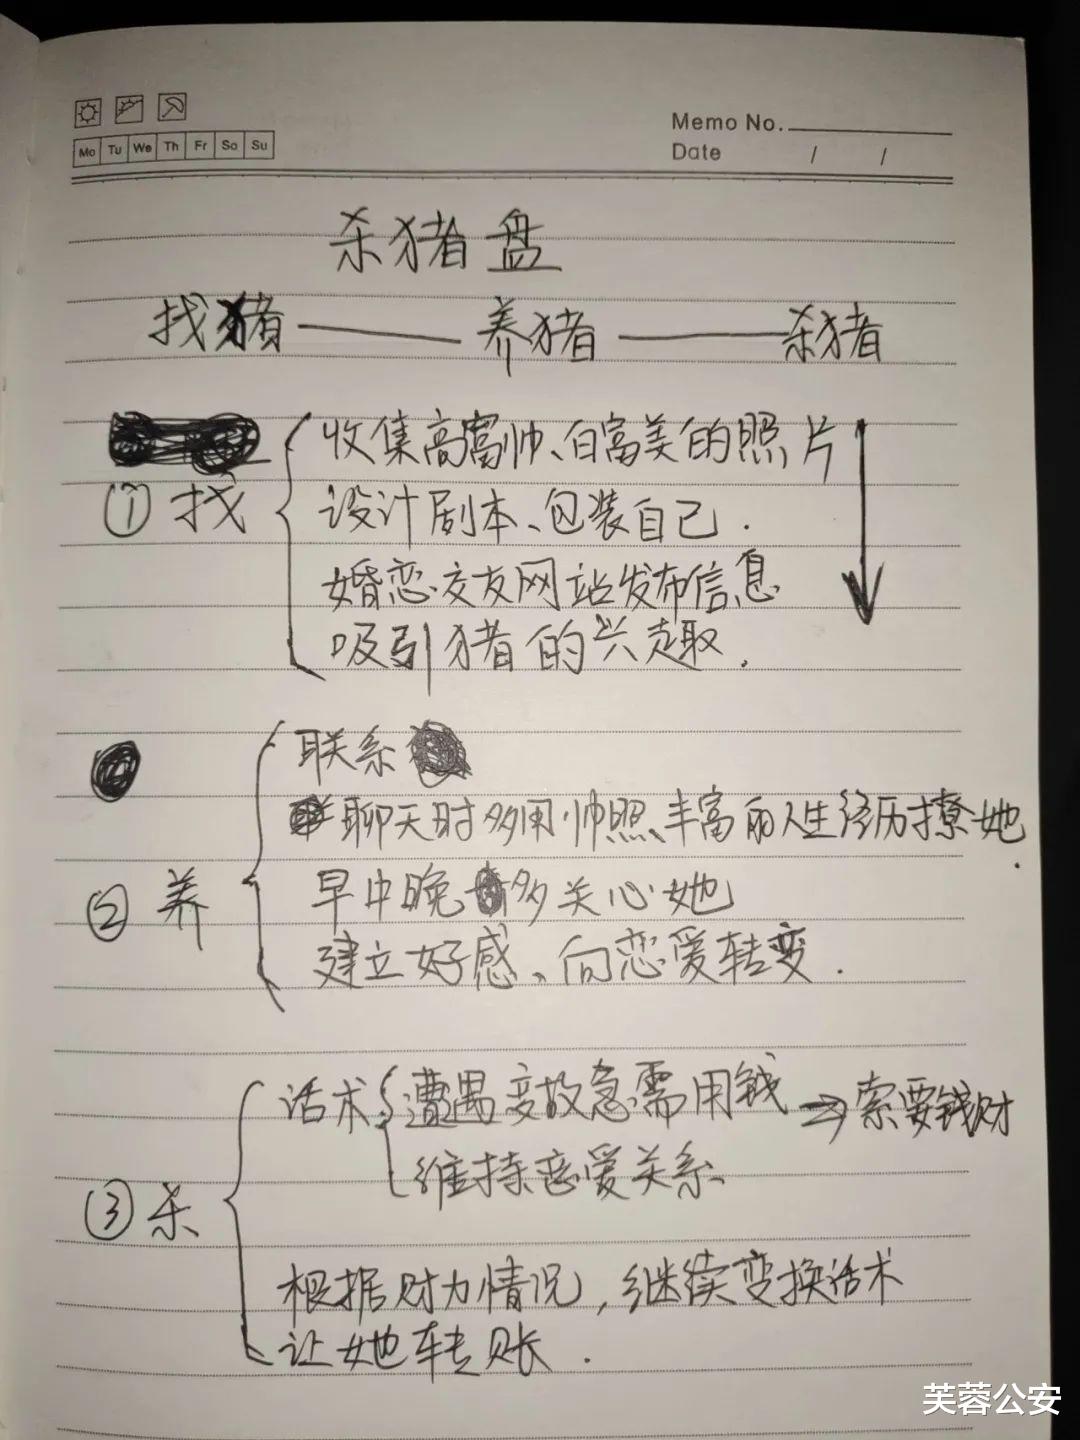 Memo No.
Mo Tu We Th Fr Sa Su
Date / /
杀猪盘
找猪 —— 养猪 —— 杀猪
收集高富帅、白富美的照片
① 找
设计剧本、包装自己.
婚恋交友网站发布信息
吸引猪的兴趣.
联系
聊天时多用帅照、丰富的人生经历撩她.
② 养
早中晚多关心她
建立好感、向恋爱转变.
话术 遭遇变故急需用钱 → 索要钱财
维持恋爱关系
③ 杀
根据财力情况,继续变换话术
让她转账.
芙蓉公安